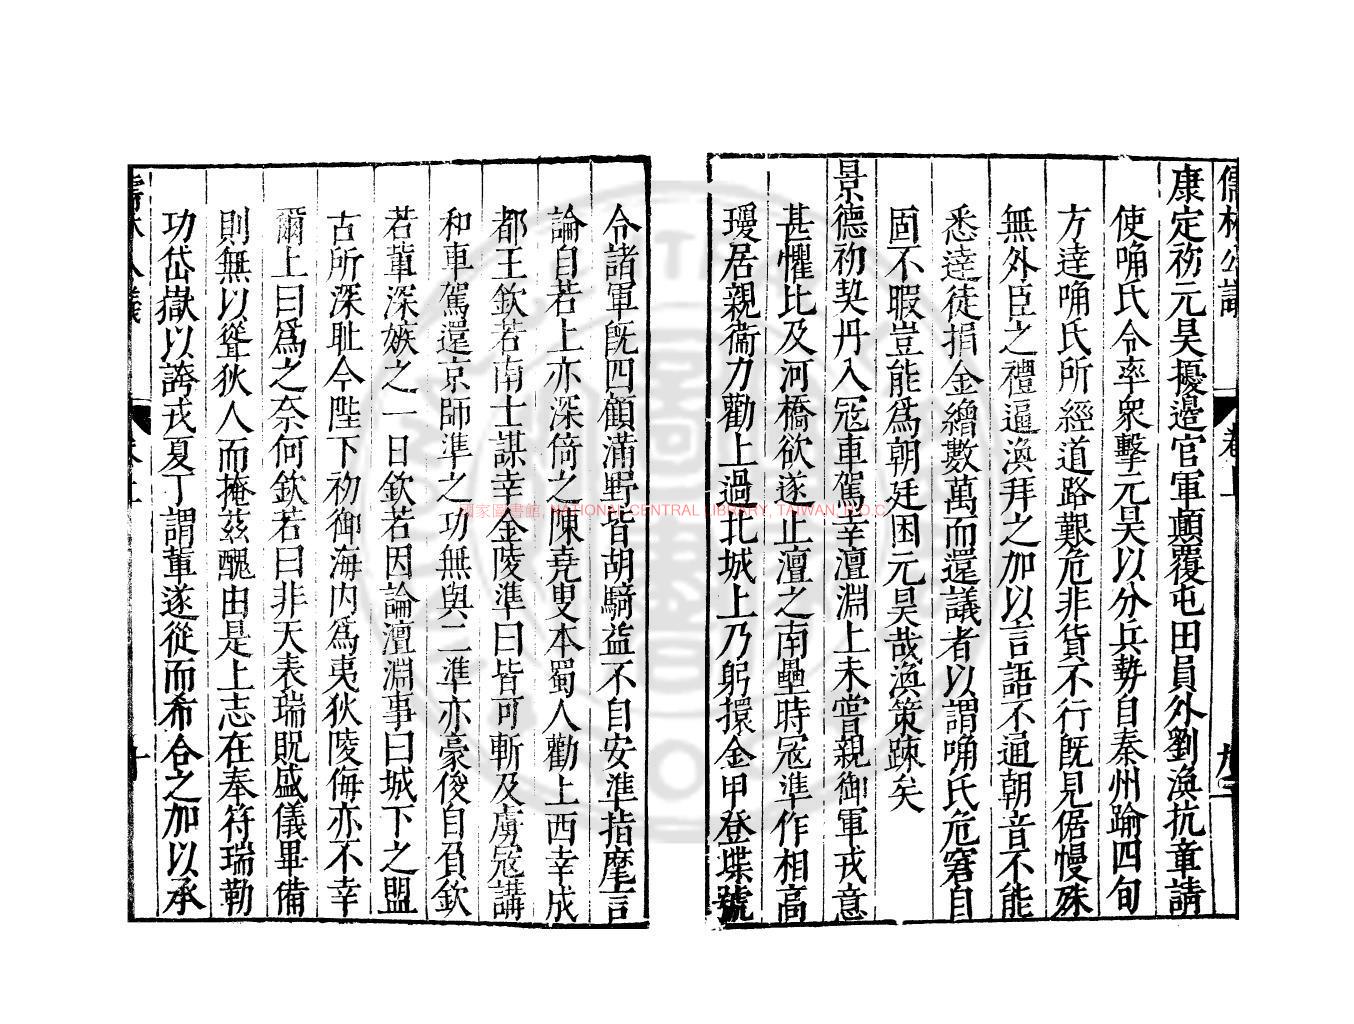 儒林公議 卷上 九
康定初元昊擾邊官軍顛覆屯田員外劉渙抗章請
使唃氏令率衆擊元昊以分兵勢自秦州踰四旬
方達唃氏所經道路艱危非貨不行旣見倨慢殊
無外臣之禮逼渙拜之加以言語不通朝音不能
悉達徒捐金繒數萬而還議者以謂唃氏危窘自
固不暇豈能爲朝廷困元昊哉渙策疎矣
景德初契丹入冦車駕幸澶淵上未嘗親御軍戎意
甚懼比及河橋欲遂止澶之南壘時冦準作相高
瓊居親衞力勸上過北城上乃躬擐金甲登堞號
令諸軍旣四顧滿野皆胡騎益不自安準指麾言
論自若上亦深倚之陳堯叟本蜀人勸上西幸成
都王欽若南士謀幸金陵準曰皆可斬及虜冦講
和車駕還京師準之功無與二準亦豪俊自負欽
若輩深嫉之一日欽若因論澶淵事曰城下之盟
古所深耻今陛下初御海内爲夷狄陵侮亦不幸
爾上曰爲之奈何欽若曰非天表瑞貺盛儀畢備
則無以聳狄人而掩兹醜由是上志在奉符瑞勒
功岱嶽以誇戎夏丁謂輩遂從而希合之加以承
儒林公議 卷上 十
國家圖書館, NATIONAL CENTRAL LIBRARY, TAIWAN, R.O.C.